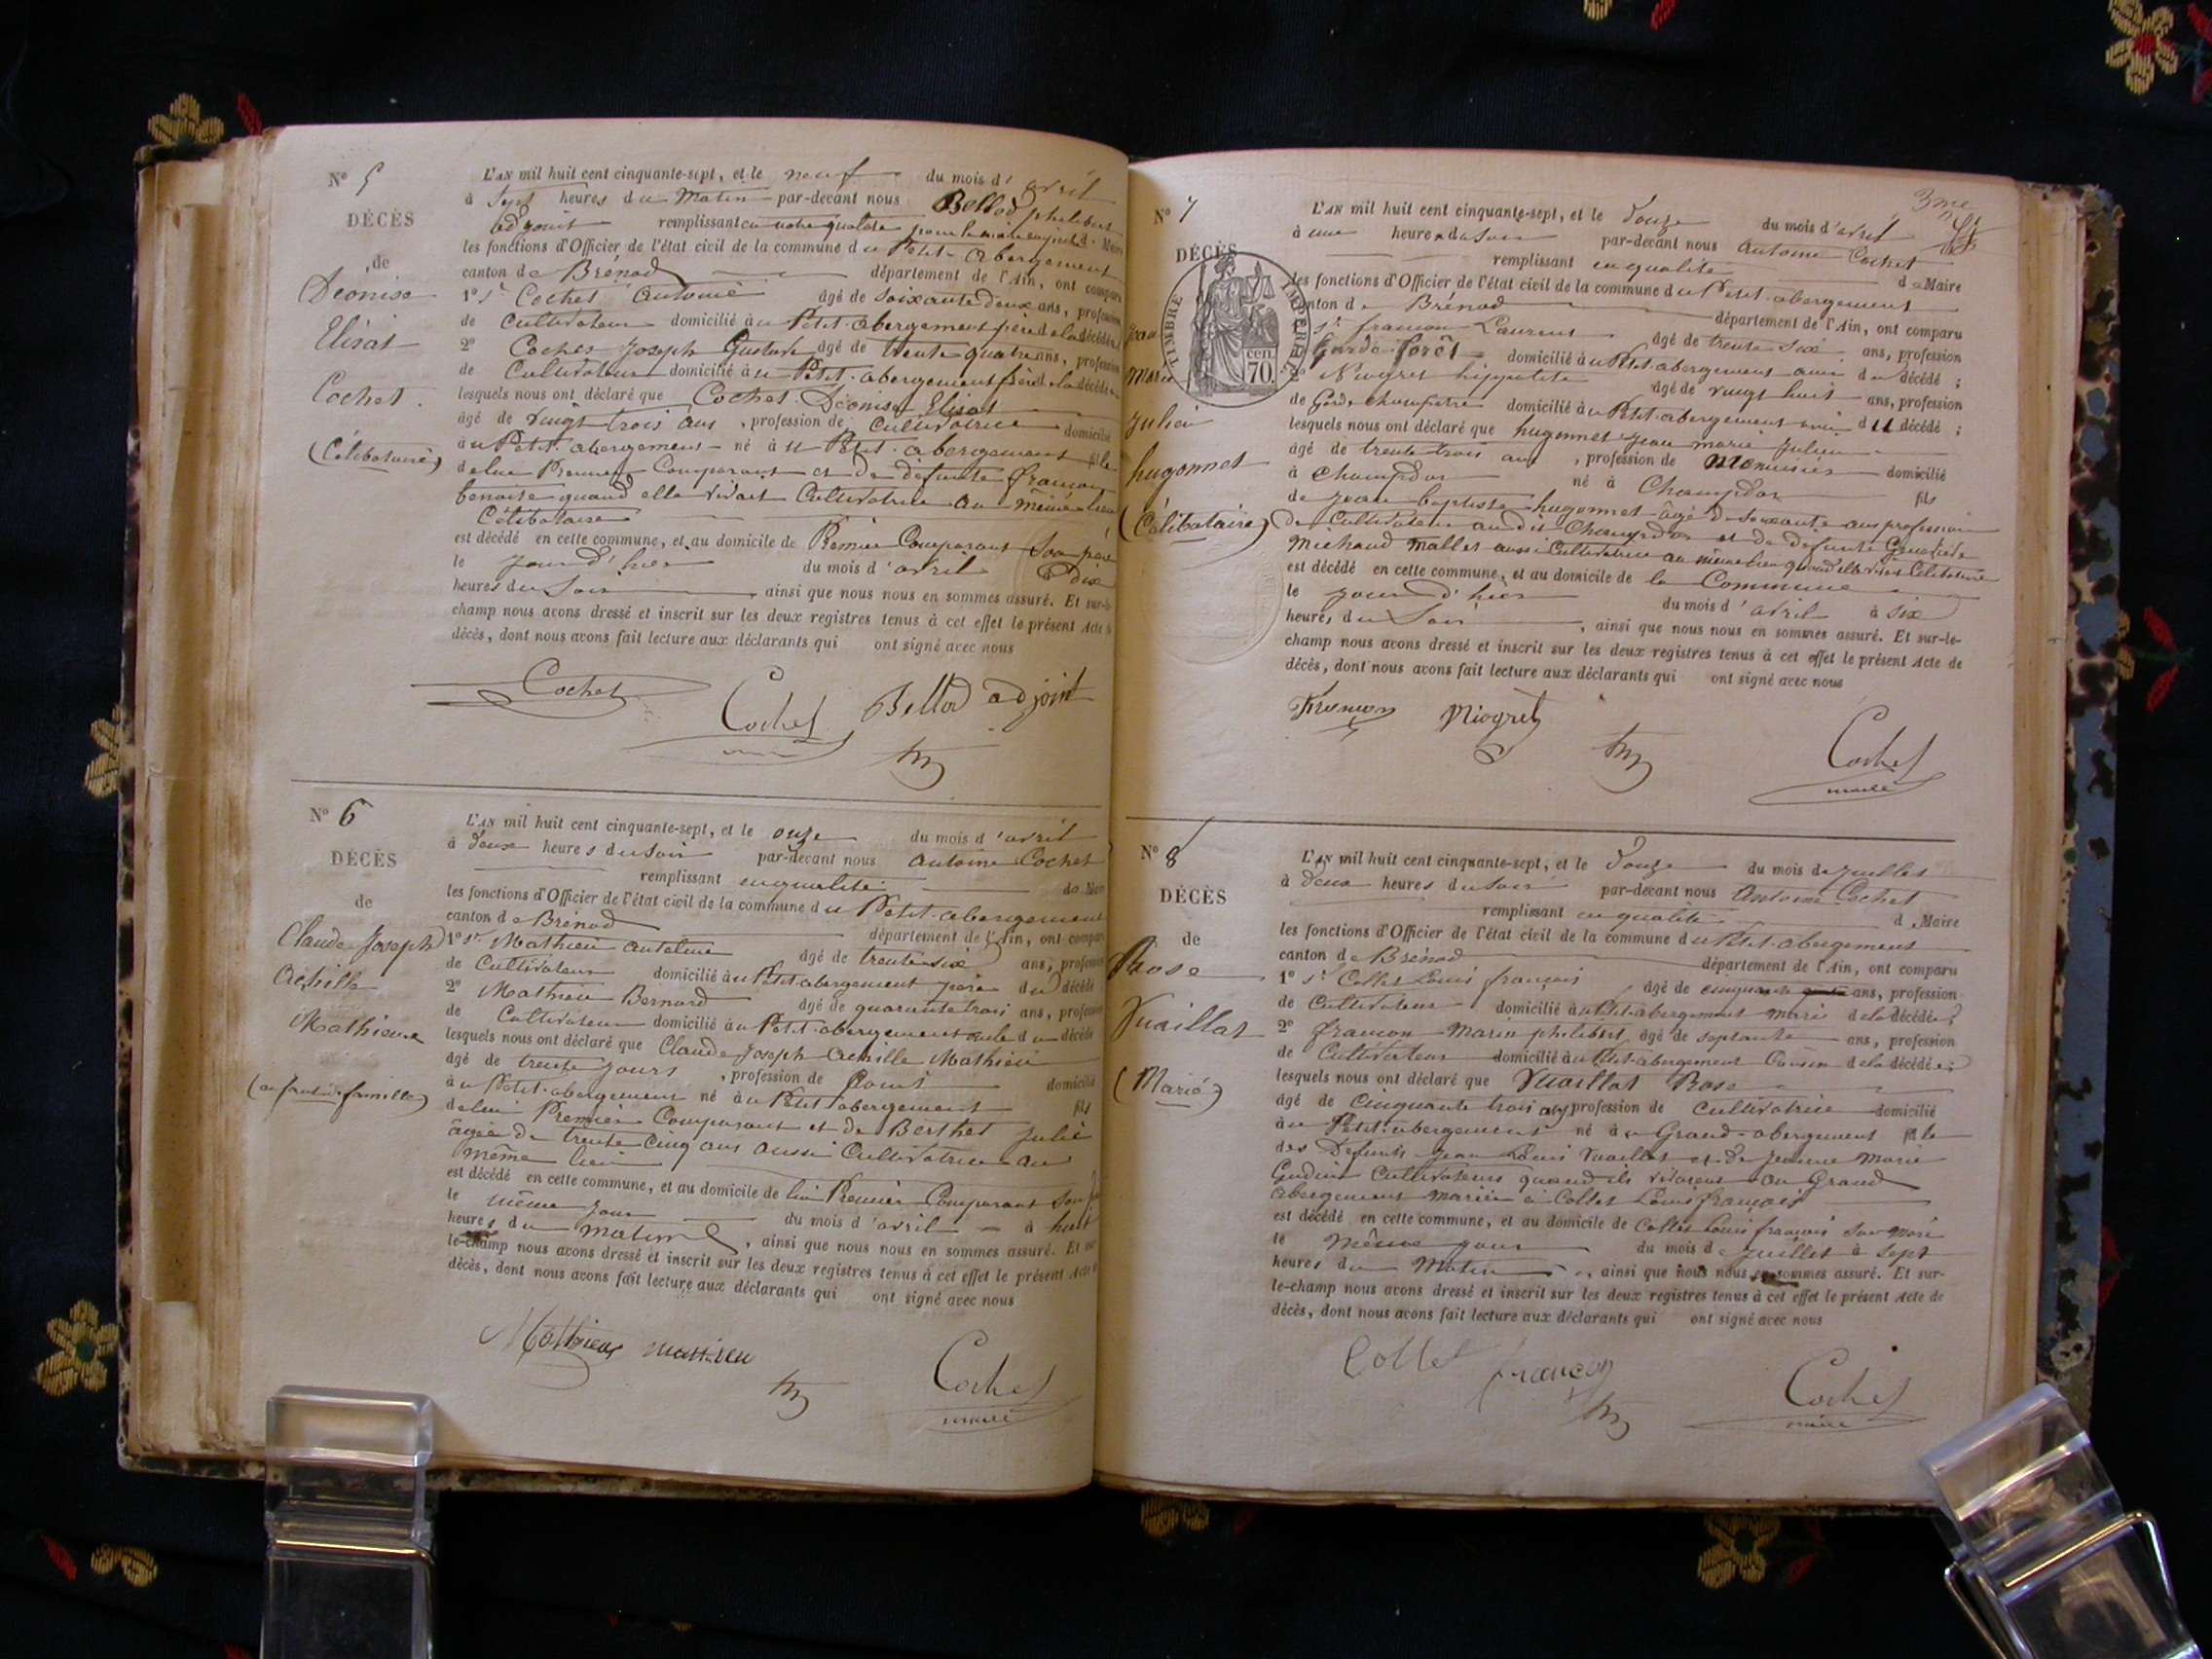 N° 5
DÉCÈS
de
Déonise
Elisat
Cochet.
(Célibataire)
L'AN mil huit cent cinquante-sept, et le neuf du mois d'avril
à sept heures du Matin par-devant nous Bellod philibert
adjoint remplissant en notre qualité
les fonctions d'Officier de l'état civil de la commune du Petit-abergement
canton de Brénod département de l'Ain, ont comparu
1° Sr Cochet Antoine âgé de soixante deux ans, profession
de Cultivateur domicilié au Petit-abergement père de la décédée
2° Cochet Joseph Gustave âgé de trente quatre ans, profession
de Cultivateur domicilié au Petit-abergement frère de la décédée
lesquels nous ont déclaré que Cochet Déonise Elisat
âgé de vingt trois ans, profession de Cultivatrice domicilié
au Petit-abergement né à u Petit-abergement fille
de lui Premier Comparant et de défunte françon
benoite quand elle vivait Cultivatrice au même lieu
Célibataire
est décédé en cette commune, et au domicile de Premier Comparant Son père
le jour d'hier du mois d'avril à dix
heures du Soir, ainsi que nous nous en sommes assuré. Et sur-le-
champ nous avons dressé et inscrit sur les deux registres tenus à cet effet le présent Acte de
décès, dont nous avons fait lecture aux déclarants qui ont signé avec nous
Cochet
Cochet Bellod adjoint
N° 6
DÉCÈS
de
Claude Joseph
Achille
Mathieu
(enfant de famille)
L'AN mil huit cent cinquante-sept, et le onze du mois d'avril
à deux heures du soir par-devant nous Antoine Cochet
remplissant en qualité de Maire
les fonctions d'Officier de l'état civil de la commune du Petit-abergement
canton de Brénod département de l'Ain, ont comparu
1° Sr Mathieu Antelme âgé de trente six ans, profession
de Cultivateur domicilié au Petit-abergement père du décédé
2° Mathieu Bernard âgé de quarante trois ans, profession
de Cultivateur domicilié au Petit-abergement oncle du décédé
lesquels nous ont déclaré que Claude Joseph Achille Mathieu
âgé de trente jours, profession de domicilié
au Petit-abergement né au Petit abergement fils
de lui Premier Comparant et de Berthet Julie
âgée de trente cinq ans aussi Cultivatrice au
même lieu
est décédé en cette commune, et au domicile de lui Premier Comparant Son père
le même jour du mois d'avril à huit
heures du matin, ainsi que nous nous en sommes assuré. Et sur-
le-champ nous avons dressé et inscrit sur les deux registres tenus à cet effet le présent Acte de
décès, dont nous avons fait lecture aux déclarants qui ont signé avec nous
Mathieu mathieu
Cochet
maire
3me
N° 7
DÉCÈS
TIMBRE IMPÉRIAL
cen.
70.
Jean
Marie
Julien
hugonnet
(Célibataire)
L'AN mil huit cent cinquante-sept, et le douze du mois d'avril
à une heure du soir par-devant nous Antoine Cochet
remplissant en qualité de Maire
les fonctions d'Officier de l'état civil de la commune du Petit-abergement
canton de Brénod département de l'Ain, ont comparu
Sr françon Laurent âgé de trente six ans, profession
Garde forêt domicilié au Petit-abergement ami du décédé;
2° Niogret hippolite âgé de vingt huit ans, profession
de Garde champêtre domicilié au Petit-abergement ami du décédé;
lesquels nous ont déclaré que hugonnet Jean marie Julien
âgé de trente trois ans, profession de Menuisier domicilié
à Champdor né à Champdor fils
de Jean baptiste hugonnet âgé de soixante ans profession
de Cultivateur audit Champdor et de défunte Geneviève
Michaud Mallet aussi Cultivatrice au même lieu quand elle vivait Célibataire
est décédé en cette commune, et au domicile de la Commune
le jour d'hier du mois d'avril à six
heures du Soir, ainsi que nous nous en sommes assuré. Et sur-le-
champ nous avons dressé et inscrit sur les deux registres tenus à cet effet le présent Acte de
décès, dont nous avons fait lecture aux déclarants qui ont signé avec nous
françon Niogret
Cochet
maire
N° 8
DÉCÈS
de
Rose
Vuaillat
(Marié)
L'AN mil huit cent cinquante-sept, et le douze du mois de juillet
à deux heures du soir par-devant nous Antoine Cochet
remplissant en qualité de Maire
les fonctions d'Officier de l'état civil de la commune du Petit-abergement
canton de Brénod département de l'Ain, ont comparu
1° Sr Collet Louis françois âgé de cinquante ans, profession
de Cultivateur domicilié au Petit-abergement mari de la décédée;
2° françon Marin philibert âgé de septante ans, profession
de Cultivateur domicilié au Petit-abergement Cousin de la décédée;
lesquels nous ont déclaré que Vuaillat Rose
âgé de Cinquante trois ans, profession de Cultivatrice domicilié
au Petit-abergement né au Grand-abergement fille
des Défunts Jean Louis Vuaillat et de Jeanne Marie
Gudin Cultivateurs quand ils vivaient au Grand
abergement mariée à Collet Louis françois
est décédé en cette commune, et au domicile de Collet Louis françois Son Mari
le même jour du mois de juillet à sept
heures du Matin, ainsi que nous nous en sommes assuré. Et sur-
le-champ nous avons dressé et inscrit sur les deux registres tenus à cet effet le présent Acte de
décès, dont nous avons fait lecture aux déclarants qui ont signé avec nous
Collet françon
Cochet
maire